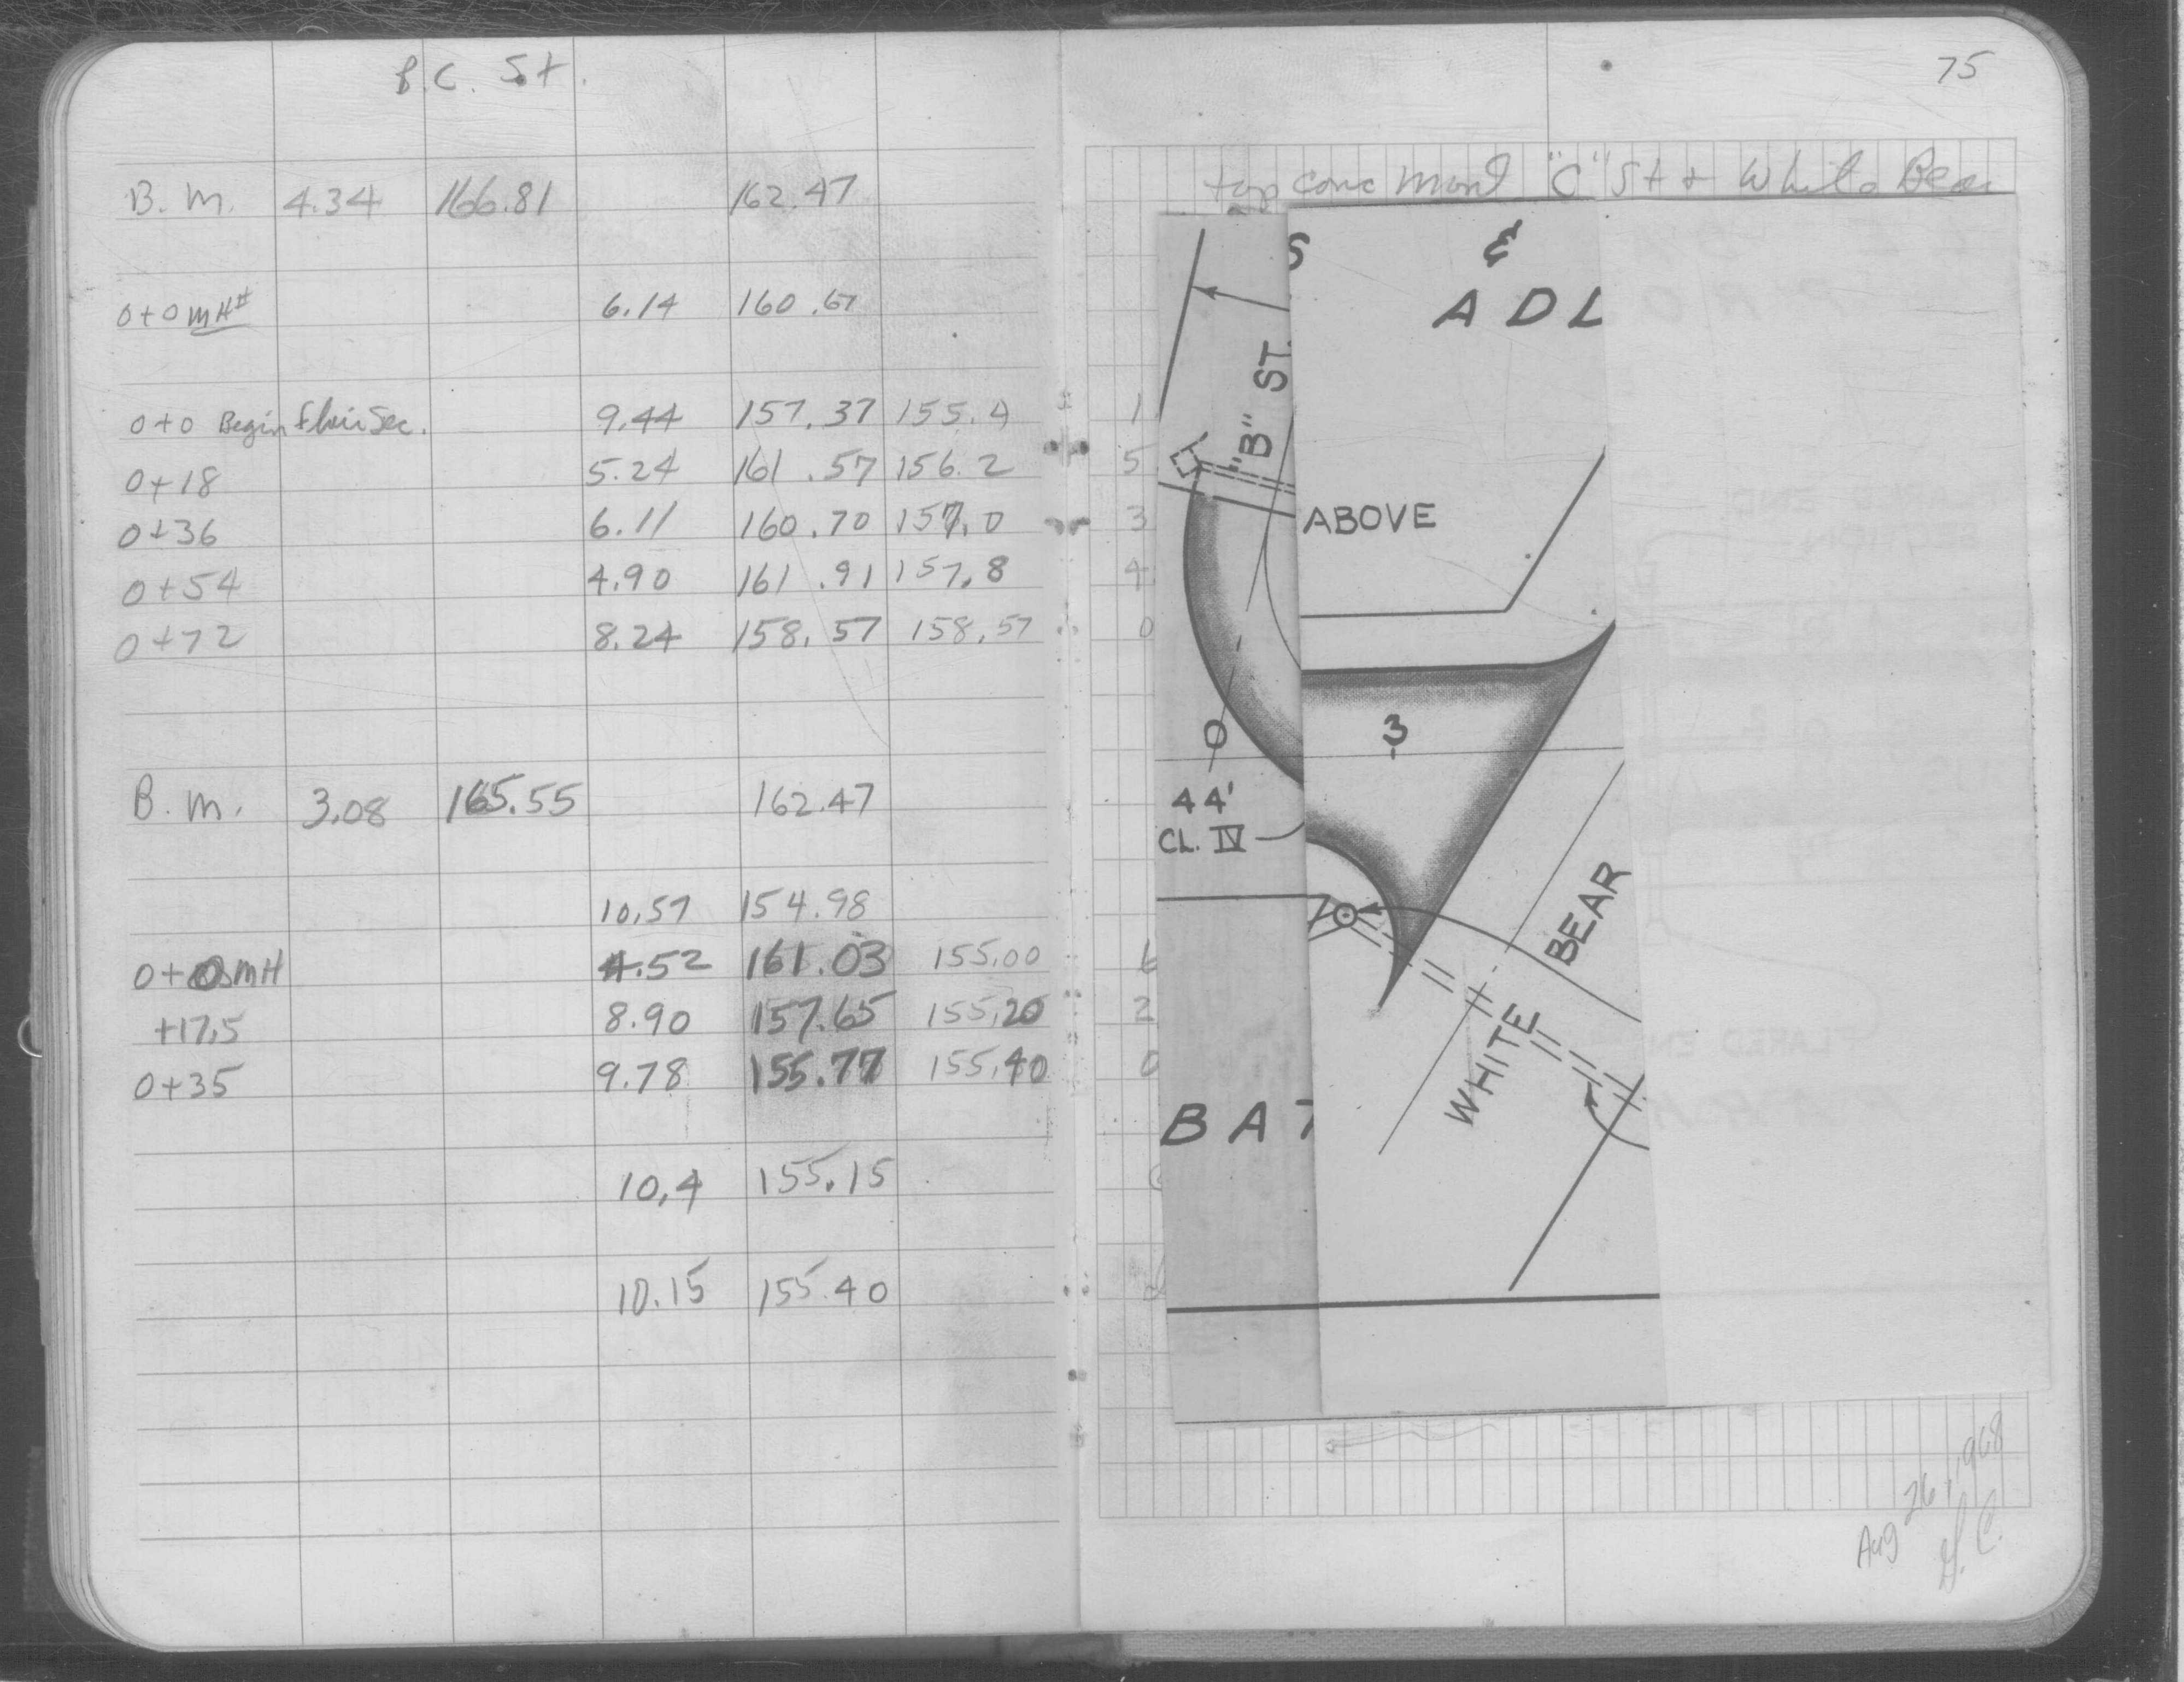 B.C. St.
B.M. 4.34 166.81 162.47
0+0 MH# 6.14 160.67
0+0 Begin Sec. 9.44 157.37 155.4
0+18 5.24 161.57 156.2
0+36 6.11 160.70 157.0
0+54 4.90 161.91 157.8
0+72 8.24 158.57 158.57
B.M. 3.08 165.55 162.47
10.57 154.98
0+0 MH 4.52 161.03 155.00
+17.5 8.90 157.65 155.20
0+35 9.78 155.77 155.40
10.4 155.15
10.15 155.40
75
top conc mont "C" St + White Bear
1
5
3
4
0
6
2
0
S &
ADL
"B" ST.
ABOVE
3
0
44'
CL. IV
BEAR
WHITE
BAT
FLARED END
SECTION
FLARED EN
Aug 26, 1968
G.C.